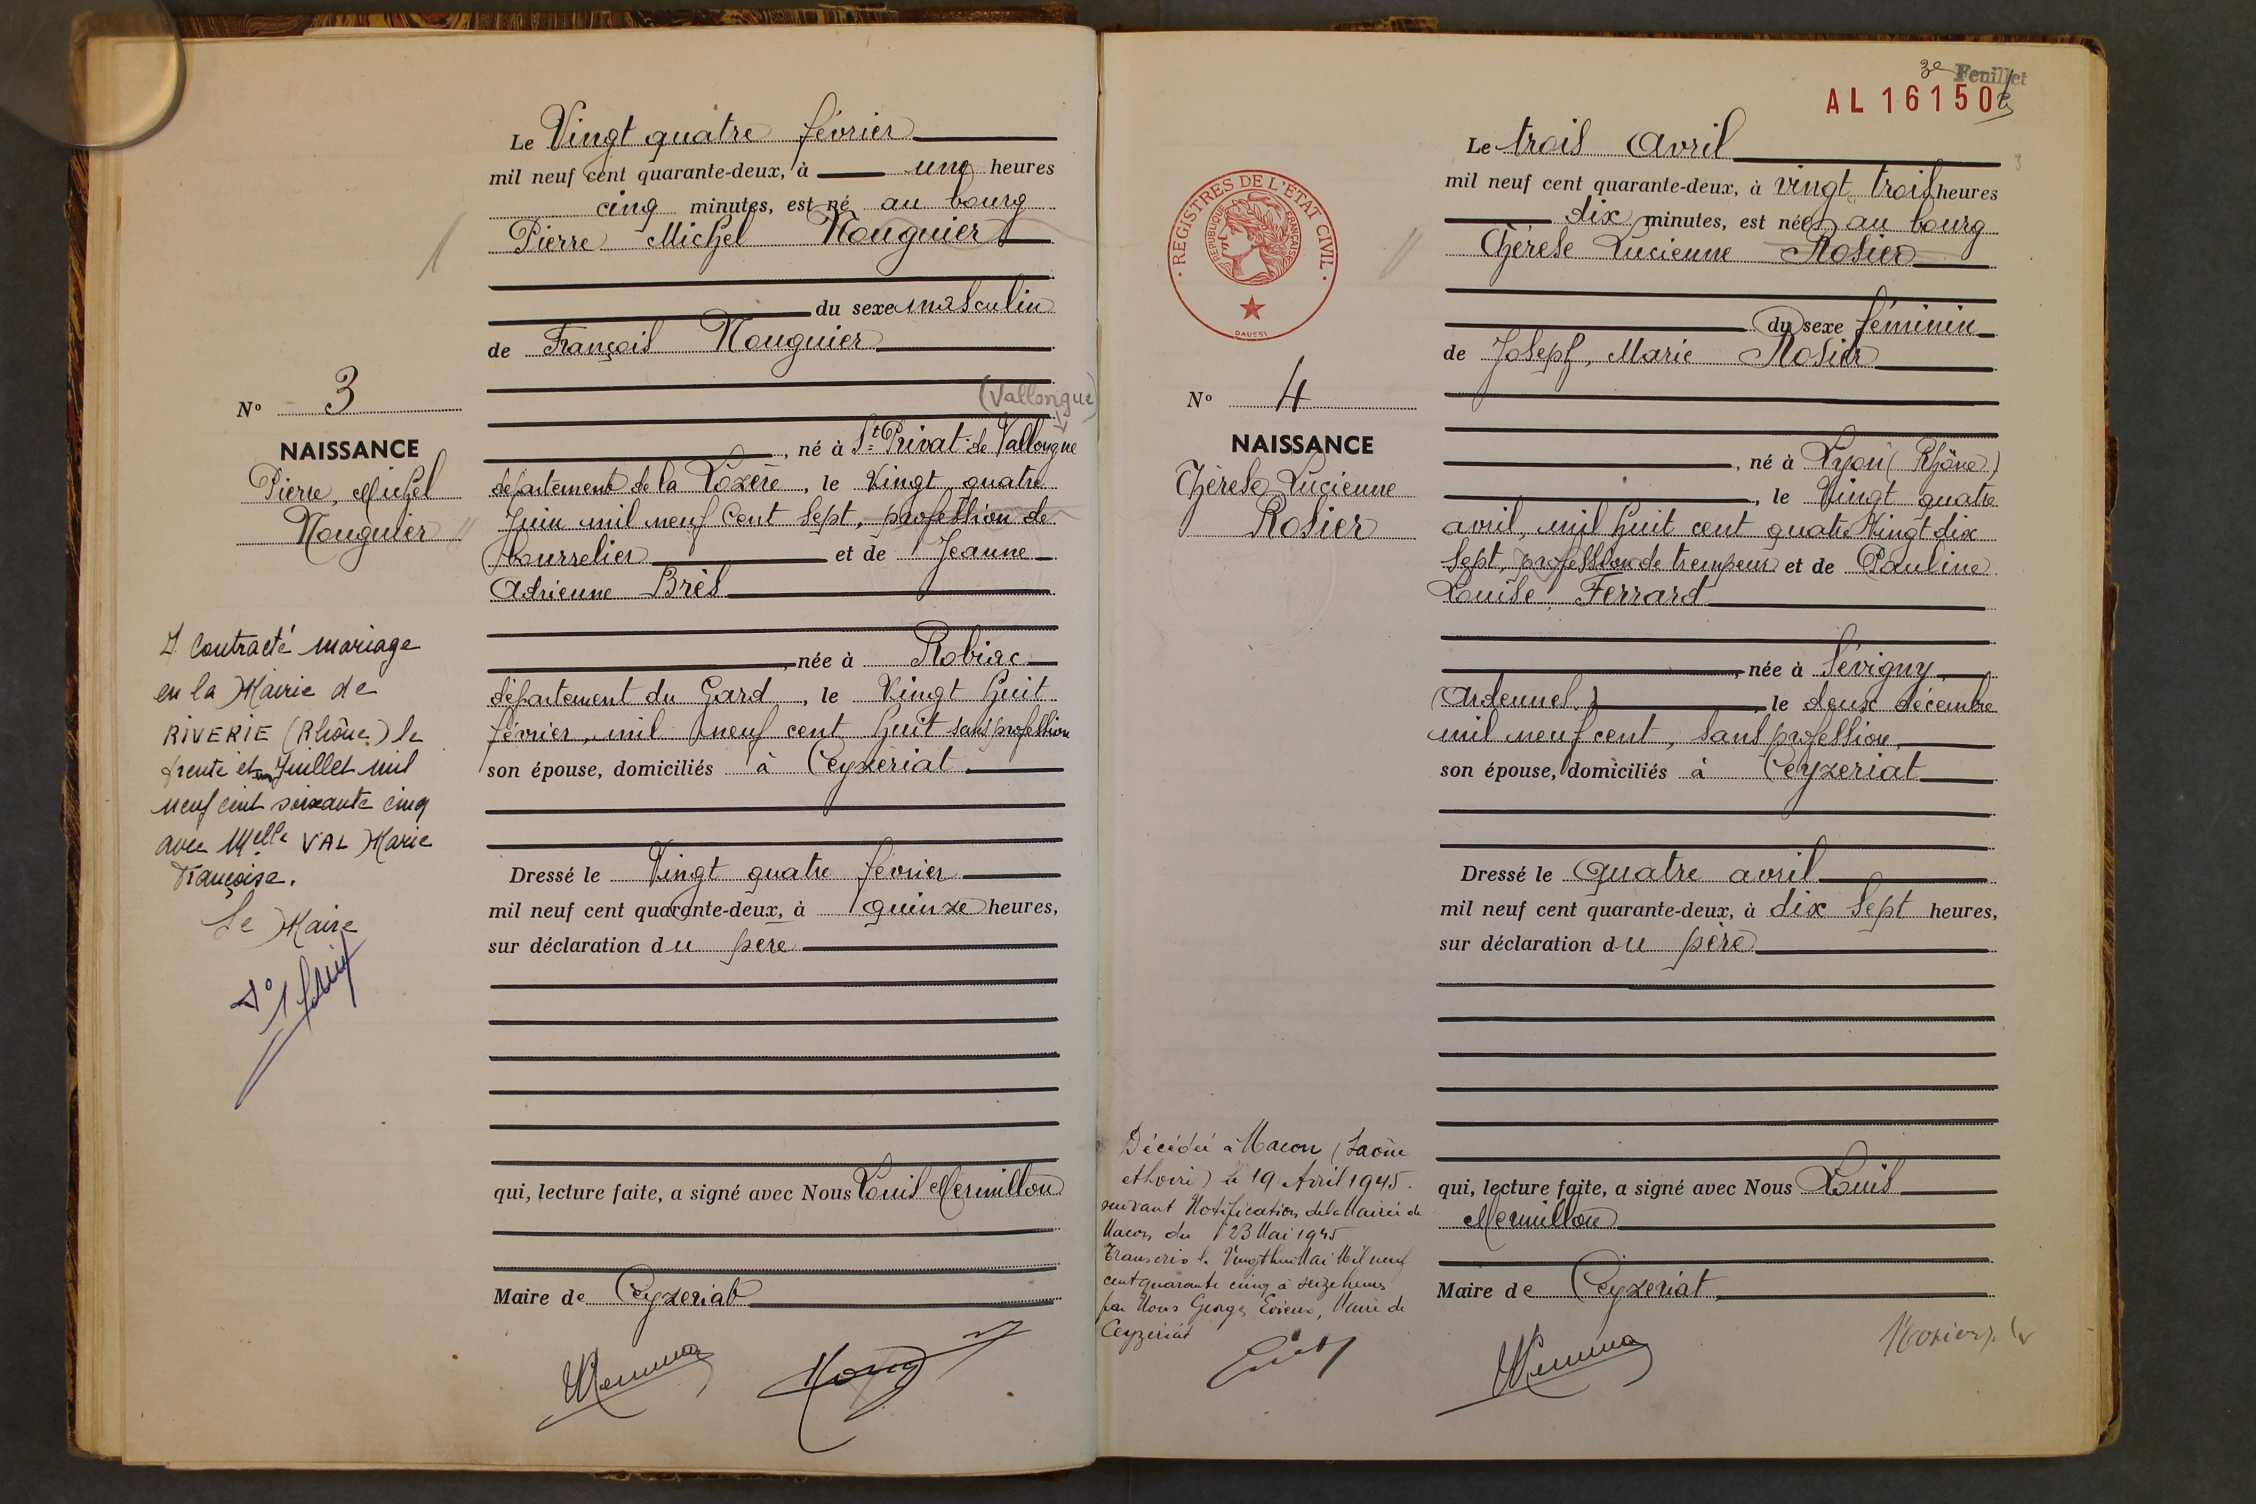 Le Vingt quatre février
mil neuf cent quarante-deux, à une heures
cinq minutes, est né au bourg
Pierre Michel Nouguier
du sexe masculin
de François Nouguier
(Vallongue)
, né à St Privat de Vallougne
département de la Lozère, le Vingt quatre
Juin mil neuf cent sept, profession de
bourrelier et de Jeanne
Adrienne Brès
, née à Robiac
département du Gard, le Vingt huit
février, mil neuf cent huit sans profession
son épouse, domiciliés à Ceyzeriat
Dressé le Vingt quatre février
mil neuf cent quarante-deux, à quinze heures,
sur déclaration du père
qui, lecture faite, a signé avec Nous Louis Mermillon
Maire de Ceyzeriat
No 3
NAISSANCE
Pierre, Michel
Nouguier
A contracté mariage
en la Mairie de
RIVERIE (Rhône) le
trente et un Juillet mil
neuf cent soixante cinq
avec Melle VAL Marie
Françoise.
Le Maire
3e Feuillet
AL 16150
REGISTRES DE L'ETAT CIVIL
REPUBLIQUE FRANÇAISE
DAUSSI
Le trois Avril
mil neuf cent quarante-deux, à vingt trois heures
dix minutes, est née au bourg
Thérèse Lucienne Rosier
du sexe féminin
de Joseph, Marie Rosier
, né à Lyon (Rhône)
, le Vingt quatre
avril, mil huit cent quatre Vingt dix
sept, profession de trempeur et de Pauline
Louise Ferrard
, née à Sévigny
(Ardennes) le deux décembre
mil neuf cent, sans profession,
son épouse, domiciliés à Ceyzeriat
Dressé le quatre avril
mil neuf cent quarante-deux, à dix sept heures,
sur déclaration du père
qui, lecture faite, a signé avec Nous Louis
Mermillon
Maire de Ceyzeriat
No 4
NAISSANCE
Thérèse Lucienne
Rosier
Décédée à Macon (Saône
et Loire) le 19 Avril 1945.
suivant Notification de la Mairie de
Macon du 23 Mai 1945
Transcris le Vingt huit Mai Mil neuf
cent quarante cinq à seize heures
par Nous Georges Evieux, Maire de
Ceyzeriat